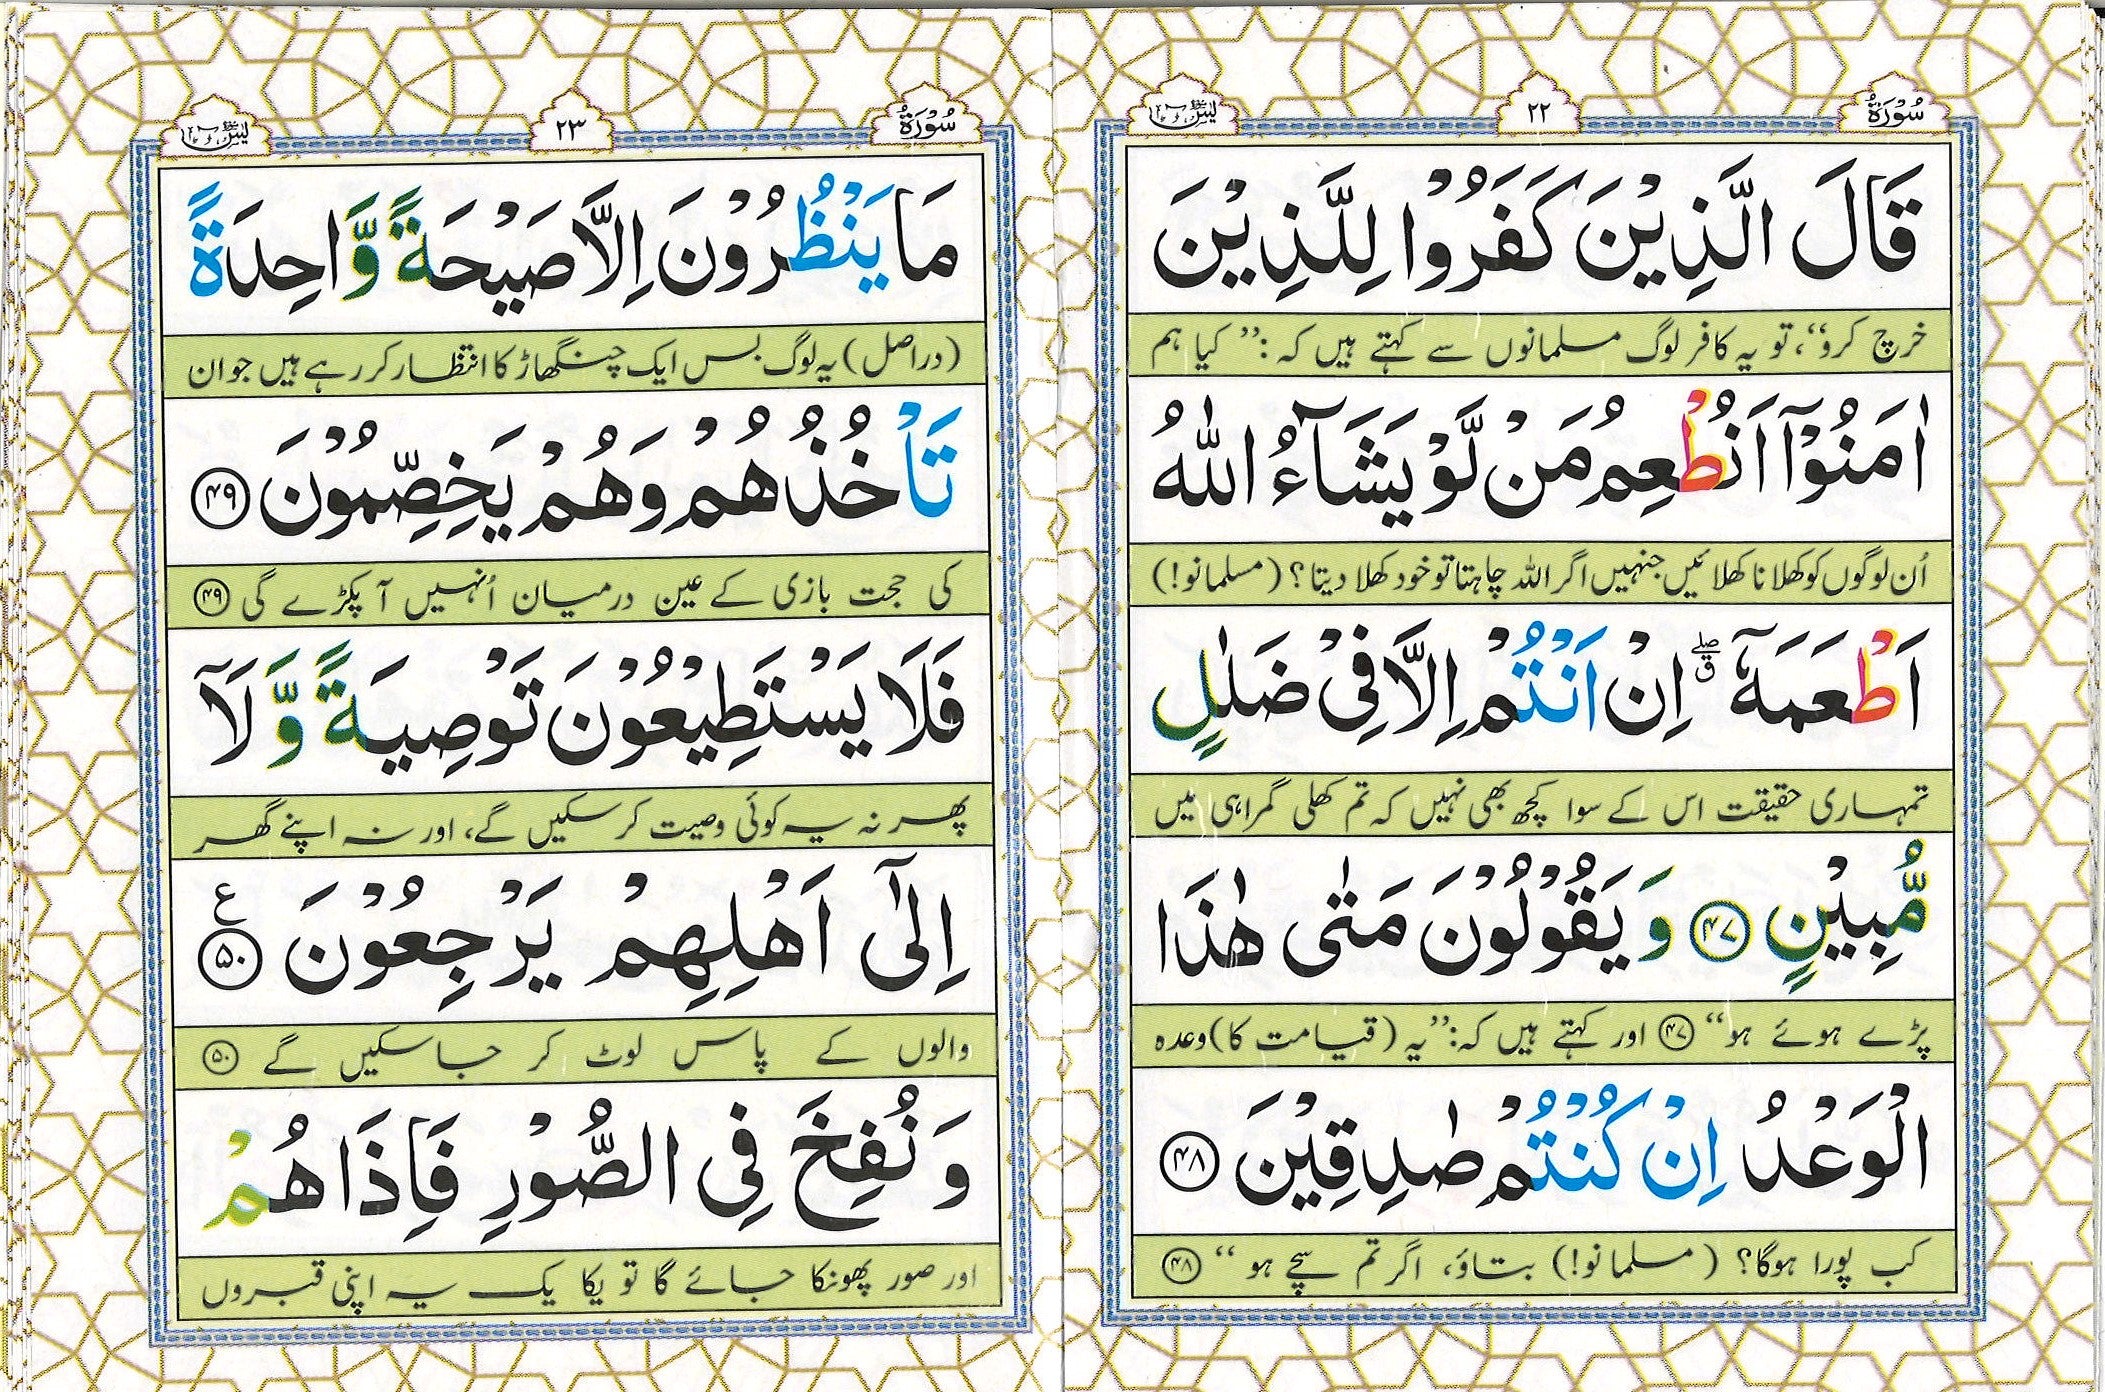 سُوْرَةُ
٢٢
يٰسٓ
قَالَ الَّذِيْنَ كَفَرُوْا لِلَّذِيْنَ
خرچ کرو“، تو یہ کافر لوگ مسلمانوں سے کہتے ہیں کہ: ” کیا ہم
اٰمَنُوْٓا اَنُطْعِمُ مَنْ لَّوْ يَشَآءُ اللّٰهُ
اُن لوگوں کو کھلانا کھلائیں جنہیں اگر اللہ چاہتا تو خود کھلا دیتا؟ (مسلمانو!)
اَطْعَمَهٗٓ ۖۗ اِنْ اَنْتُمْ اِلَّا فِيْ ضَلٰلٍ
تمہاری حقیقت اس کے سوا کچھ بھی نہیں کہ تم کھلی گمراہی میں
مُّبِيْنٍ ﴿۴۷﴾ وَيَقُوْلُوْنَ مَتٰى هٰذَا
پڑے ہوئے ہو“ ﴿۴۷﴾ اور کہتے ہیں کہ: ”یہ (قیامت کا) وعدہ
الْوَعْدُ اِنْ كُنْتُمْ صٰدِقِيْنَ ﴿۴۸﴾
کب پورا ہوگا؟ (مسلمانو!) بتاؤ، اگر تم سچے ہو“ ﴿۴۸﴾
سُوْرَةُ
٢٣
يٰسٓ
مَا يَنْظُرُوْنَ اِلَّا صَيْحَةً وَّاحِدَةً
(دراصل) یہ لوگ بس ایک چنگھاڑ کا انتظار کر رہے ہیں جو ان
تَاْخُذُهُمْ وَهُمْ يَخِصِّمُوْنَ ﴿۴۹﴾
کی حجت بازی کے عین درمیان اُنہیں آ پکڑے گی ﴿۴۹﴾
فَلَا يَسْتَطِيْعُوْنَ تَوْصِيَةً وَّلَآ
پھر نہ یہ کوئی وصیت کر سکیں گے، اور نہ اپنے گھر
اِلٰٓى اَهْلِهِمْ يَرْجِعُوْنَ ﴿۵۰﴾ ع
والوں کے پاس لوٹ کر جا سکیں گے ﴿۵۰﴾
وَنُفِخَ فِي الصُّوْرِ فَاِذَا هُمْ
اور صور پھونکا جائے گا تو یکا یک یہ اپنی قبروں